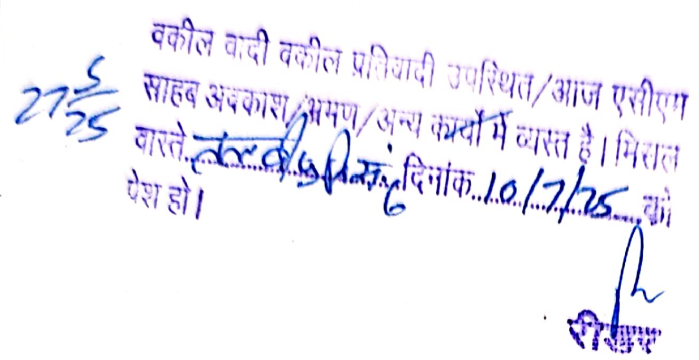 27 5/25
वकील वादी वकील प्रतिवादी उपस्थित/आज एसीएम
साहब अवकाश/भ्रमण/अन्य कार्यो में व्यस्त है। मिसल
वास्ते दिनांक 10/7/25 को
पेश हो।
रीडर